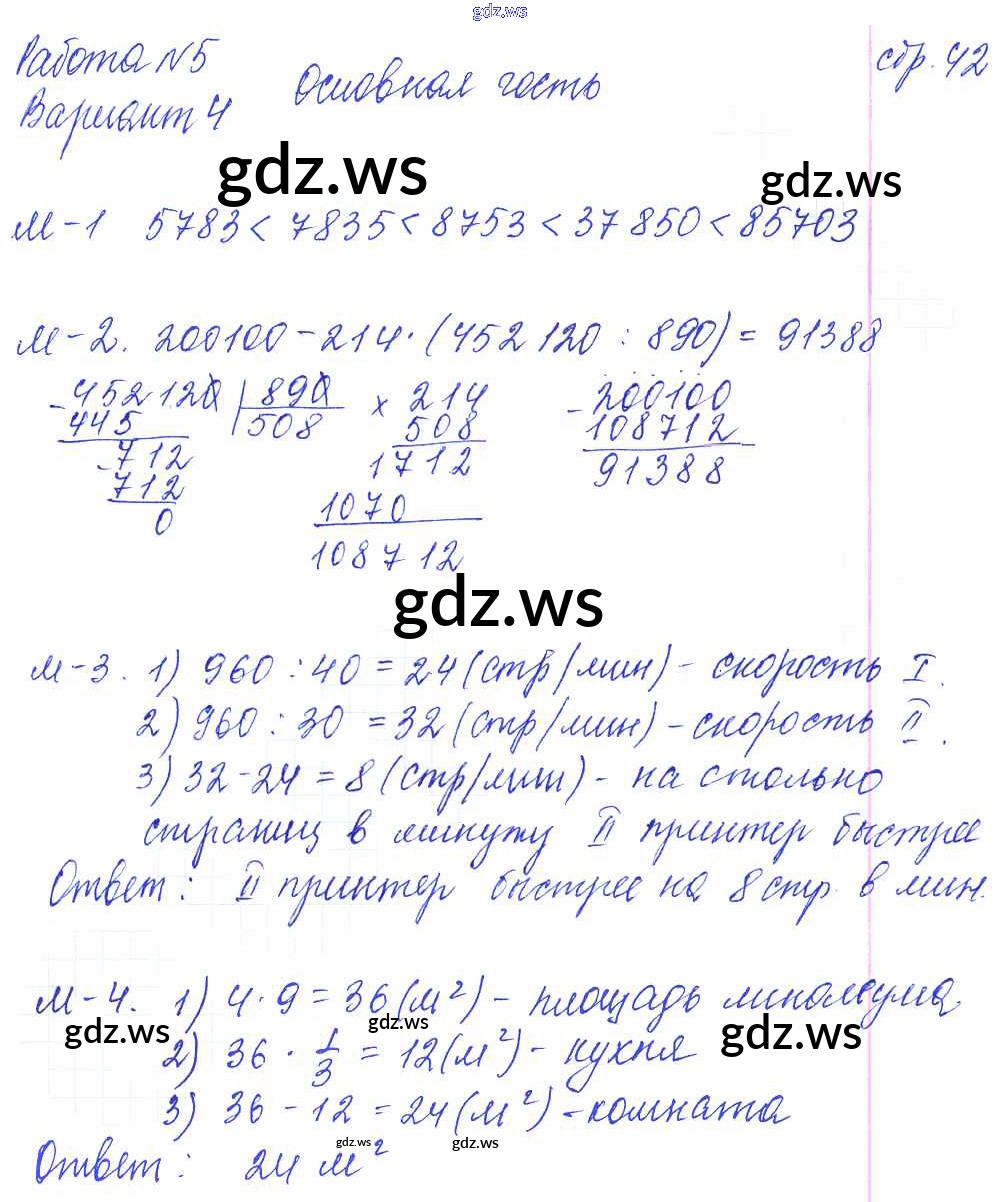 gdz.ws
Работа №5
Вариант 4
Основная часть
стр. 42
gdz.ws
gdz.ws
М-1 5783 < 7835 < 8753 < 37850 < 85703
М-2. 200100 - 214 · (452120 : 890) = 91388
- 452120 | 890 × 214 - 200100
445 508 508 108712
- 712 1712 91388
712 1070
0 108712
gdz.ws
М-3. 1) 960 : 40 = 24 (стр/мин) - скорость I.
2) 960 : 30 = 32 (стр/мин) - скорость II.
3) 32 - 24 = 8 (стр/мин) - на столько
страниц в минуту II принтер быстрее
Ответ: II принтер быстрее на 8 стр. в мин.
М-4. 1) 4 · 9 = 36 (м²) - площадь линолеума,
gdz.ws
gdz.ws
2) 36 · 1/3 = 12 (м²) - кухня
3) 36 - 12 = 24 (м²) - комната
gdz.ws
gdz.ws
Ответ: 24 м²